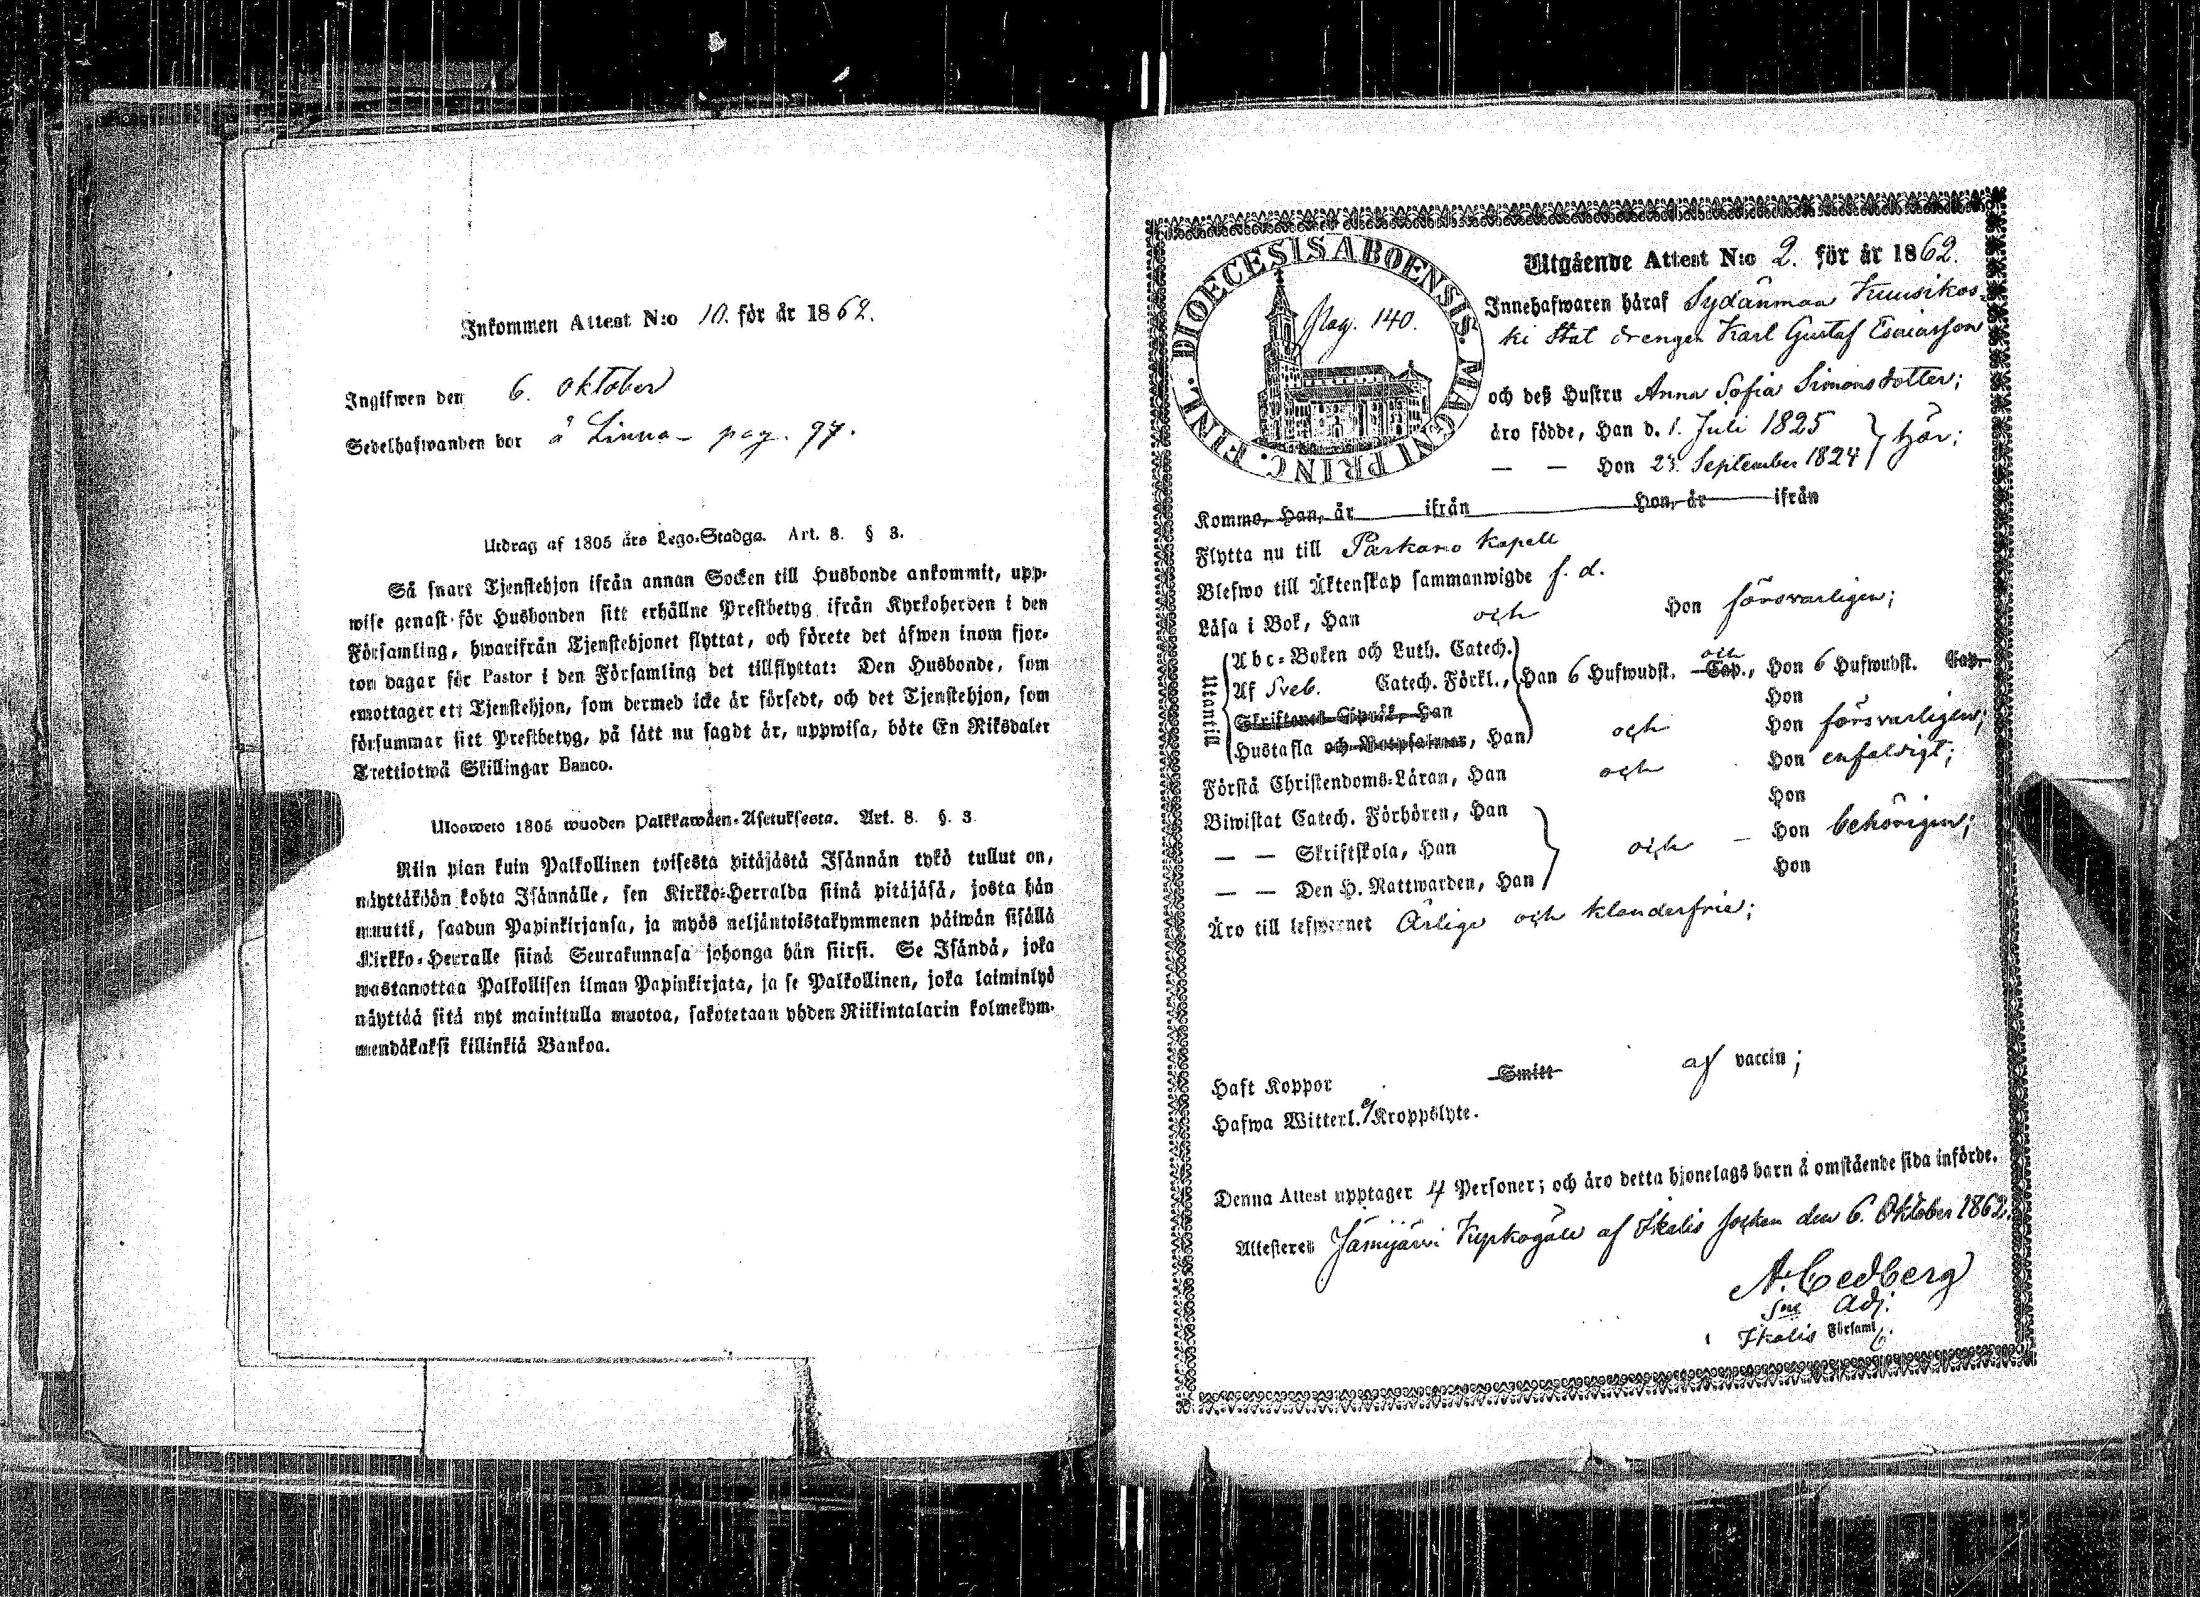 Inkommen Attest N:o 10. för år 1862.
Ingifwen den 6. oktober
Sedelhafwanden bor å Linna - pag. 97.
Utdrag af 1805 års Lego-Stadga. Art. 8. § 3.
Så snart Tjenstehjon ifrån annan Socken till Husbonde ankommit, upp-
wise genast för Husbonden sitt erhållne Prestbetyg ifrån Kyrkoherden i den
Församling, hwarifrån Tjenstehjonet flyttat, och förete det äfwen inom fjor-
ton dagar för Pastor i den Församling det tillflyttat: Den Husbonde, som
emottager ett Tjenstehjon, som dermed icke är försedt, och det Tjenstehjon, som
försummar sitt Prestbetyg, på sätt nu sagdt är, uppwisa, böte En Riksdaler
Trettiotwå Skillingar Banco.
Ulosweto 1805 wuoden Palkkawäen-Asetuksesta. Art. 8. §. 3.
Niin pian kuin Palkollinen toisesta pitäjästä Isännän tykö tullut on,
näyttäköön kohta Isännälle, sen Kirkko-Herralda siinä pitäjäsä, josta hän
muutti, saadun Papinkirjansa, ja myös neljäntoistakymmenen päiwän sisällä
Kirkko-Herralle siinä Seurakunnasa johonga hän siirsi. Se Isändä, joka
wastanottaa Palkollisen ilman Papinkirjata, ja se Palkollinen, joka laiminlyö
näyttää sitä nyt mainitulla muotoa, sakotetaan yhden Riikintalarin kolmekym-
mendäkaksi killinkiä Bankoa.
DIOECESIS ABOENSIS. MAGNI PRINC. FINL.
Pag. 140.
Utgående Attest N:o 2. för år 1862.
Innehafwaren häraf Sydänmaa Kuusikos-
ki Stat drengen Karl Gustaf Esaiasson
och deß Hustru Anna Sofia Simonsdotter;
äro födde, Han d. 1. Juli 1825
— — Hon 23. September 1824 } här;
Kommo, Han, år ifrån Hon, år ifrån
Flytta nu till Parkano Kapell
Blefwo till Äktenskap sammanwigde f. d.
Läsa i Bok, Han och Hon försvarligen;
Utantill
Abc-Boken och Luth. Catech.
Af Sveb. Catech. Förkl., Han 6 Hufwudst. och Cap., Hon 6 Hufwudst. Cap.
Skriftenes Språk, Han Hon
Hustafla och Botpsalmer, Han och Hon försvarligen;
Förstå Christendoms-Läran, Han och Hon enfaldigt;
Biwistat Catech. Förhören, Han Hon
— — Skriftskola, Han och — Hon behörigen;
— — Den H. Nattwarden, Han Hon
Äro till lefwernet Ärlige och klanderfrie;
Haft Koppor Smitt af vaccin;
Hafwa Witterl. ej Kroppslyte.
Denna Attest upptager 4 Personer; och äro detta hjonelags barn å omstående sida införde.
Attesteres Jämijärvi Kyrkogäll af Ikalis Socken den 6. Oktober 1862.
A. Cedberg
Adj.
i Ikalis Församl.